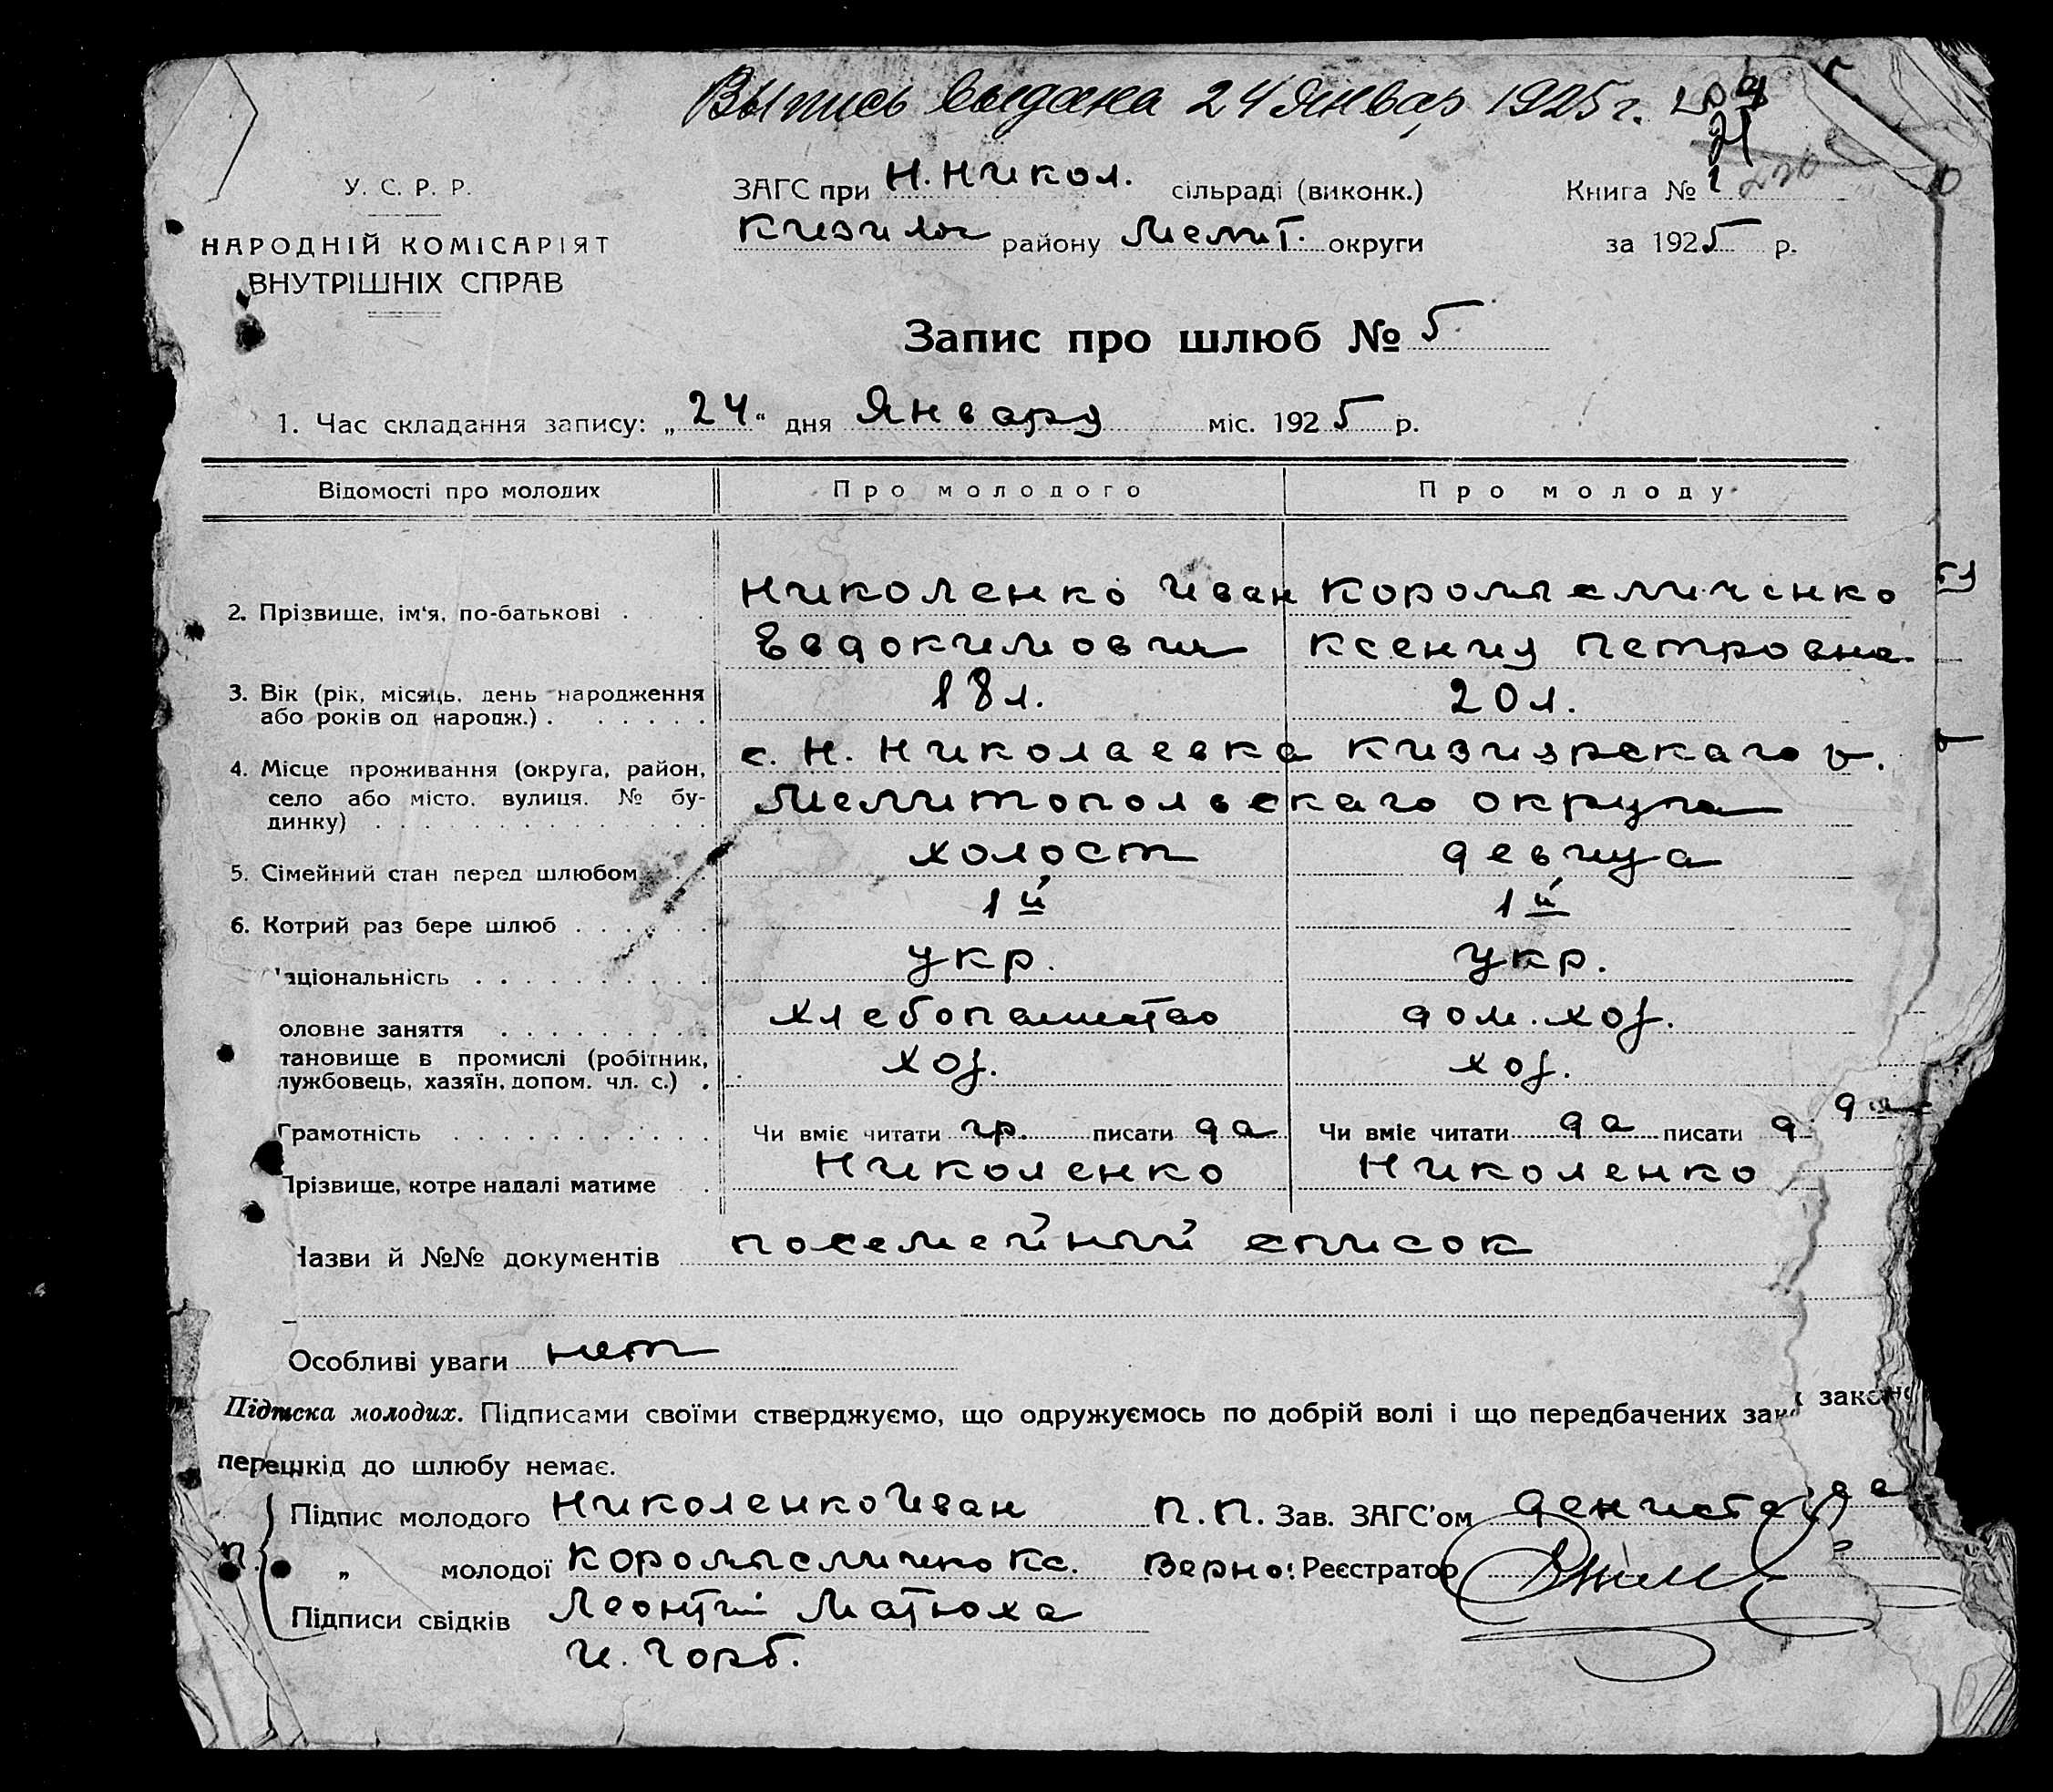 Выпись выдана 24 Январ 1925 г.
У. С. Р. Р.
НАРОДНІЙ КОМІСАРІЯТ
ВНУТРІШНІХ СПРАВ
ЗАГС при Н. Никол. сільраді (виконк.)
району Мелит. округи
Книга № 1
за 1925 р.
Запис про шлюб № 5
1. Час складання запису: „24“ дня Январу міс. 1925 р.
Відомості про молодих Про молодого Про молоду
2. Прізвище, ім'я, по-батькові . . . Николенко Иван Коромысличенко
Евдокимович Ксения Петровна
3. Вік (рік, місяць, день народження
або років од народж.) . . . . . . 18 л. 20 л.
4. Місце проживання (округа, район,
село або місто, вулиця, № бу-
динку) . . . . . . . . . . . . . .
с. Н. Николаевка Кизиярскаго р.
Мелитопольскаго округа
5. Сімейний стан перед шлюбом . . холост девица
6. Котрий раз бере шлюб . . . . . . 1й 1й
аціональність . . . . . . . . . . укр. укр.
оловне заняття . . . . . . . . . хлебопашество дом. хоз.
тановище в промислі (робітник,
лужбовець, хазяїн, допом. чл. с.) . хоз. хоз.
Грамотність . . . . . . . . . . . . Чи вміє читати гр. писати да Чи вміє читати да писати д да
Прізвище, котре надалі матиме . Николенко Николенко
Назви й №№ документів посемейный список
Особливі уваги нет
Підписка молодих. Підписами своїми стверджуємо, що одружуємось по добрій волі і що передбачених зак законо
перешкід до шлюбу немає.
Підпис молодого Николенко Иван П. П. Зав. ЗАГС'ом
П. „ молодої Коромысличенко Кс. Верно: Реєстратор
Підписи свідків Леонтий Матюха
И. Горб.